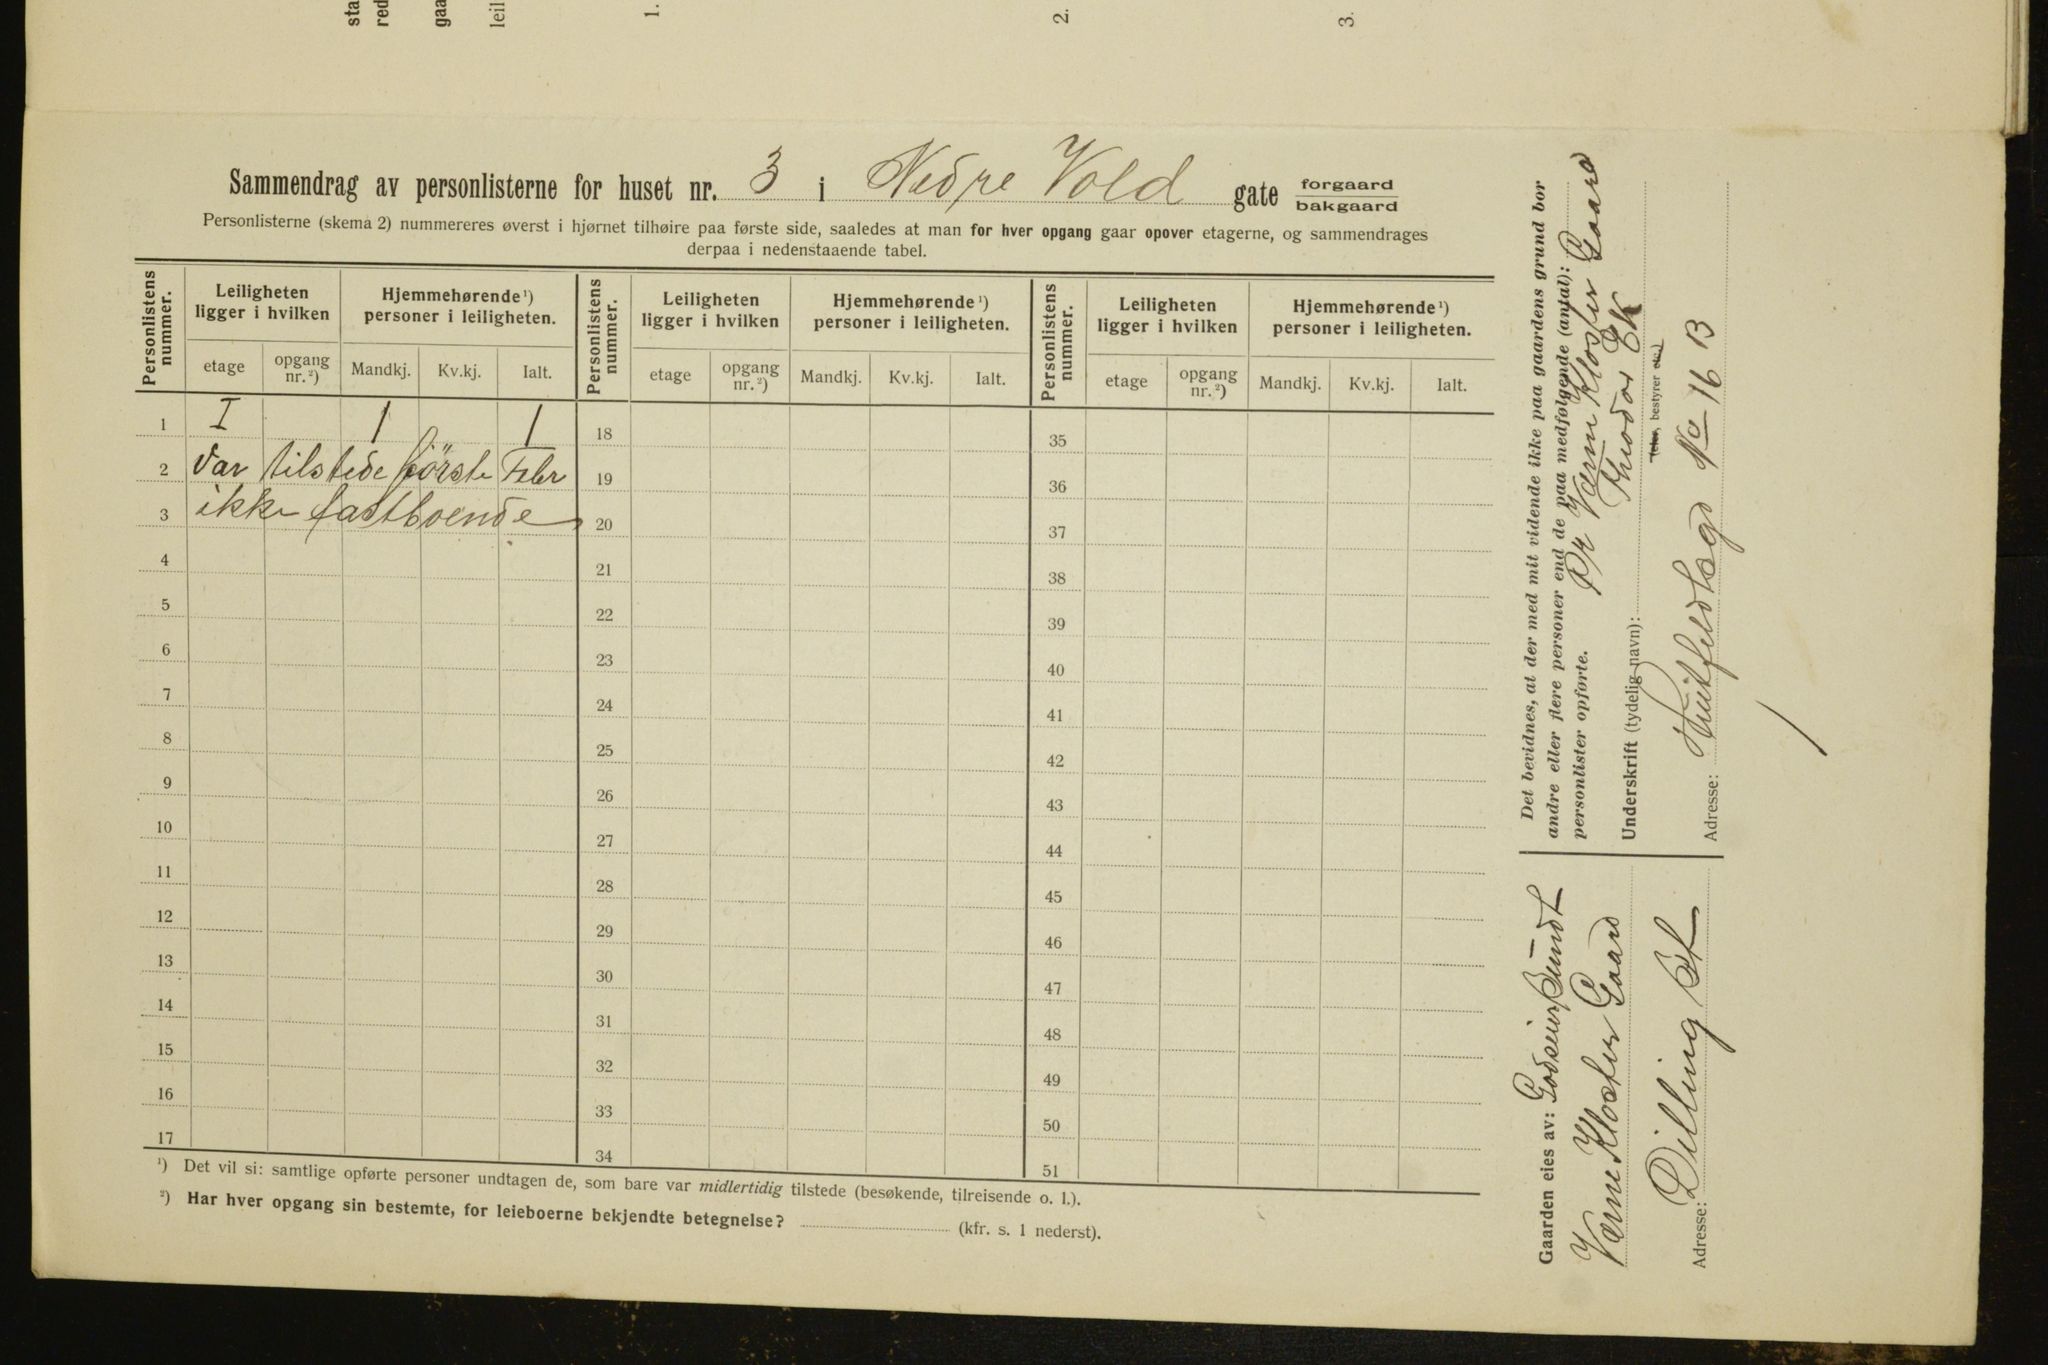 sta
red
gaa
leil
1.
2.
3.
Sammendrag av personlisterne for huset nr. 3 i Nedre Vold gate forgaard
bakgaard
Personlisterne (skema 2) nummereres øverst i hjørnet tilhøire paa første side, saaledes at man for hver opgang gaar opover etagerne, og sammendrages
derpaa i nedenstaaende tabel.
Personlistens nummer. Leiligheten ligger i hvilken Hjemmehørende¹) personer i leiligheten. Personlistens nummer. Leiligheten ligger i hvilken Hjemmehørende¹) personer i leiligheten. Personlistens nummer. Leiligheten ligger i hvilken Hjemmehørende¹) personer i leiligheten.
etage opgang nr.²) Mandkj. Kv.kj. Ialt. etage opgang nr.²) Mandkj. Kv.kj. Ialt. etage opgang nr.²) Mandkj. Kv.kj. Ialt.
1 I 1 1 18 35
2 Var tilstede første Febr 19 36
3 ikke fastboende 20 37
4 21 38
5 22 39
6 23 40
7 24 41
8 25 42
9 26 43
10 27 44
11 28 45
12 29 46
13 30 47
14 31 48
15 32 49
16 33 50
17 34 51
¹) Det vil si: samtlige opførte personer undtagen de, som bare var midlertidig tilstede (besøkende, tilreisende o. l.).
²) Har hver opgang sin bestemte, for leieboerne bekjendte betegnelse? (kfr. s. 1 nederst).
Det bevidnes, at der med mit vidende ikke paa gaardens grund bor
andre eller flere personer end de paa medfølgende (antal):
personlister opførte.
Pr Værne Kloster Gaard
Underskrift (tydelig navn): Theodor Ek
(eier, bestyrer etc.)
Adresse: Huitfeldtsgd No 16 B
Gaarden eies av: Godseier Sundt
Værne Kloster Gaard
Adresse: Dilling St